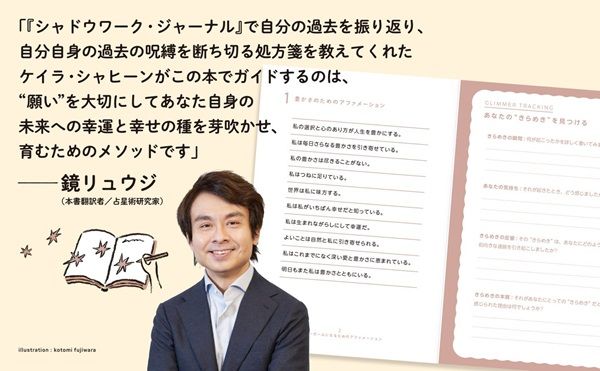 「『シャドウワーク・ジャーナル』で自分の過去を振り返り、
自分自身の過去の呪縛を断ち切る処方箋を教えてくれた
ケイラ・シャヒーンがこの本でガイドするのは、
“願い”を大切にしてあなた自身の
未来への幸運と幸せの種を芽吹かせ、
育むためのメソッドです」
──鏡リュウジ
（本書翻訳者／占星術研究家）
illustration : kotomi fujiwara
1 豊かさのためのアファメーション
私の選択と心のあり方が人生を豊かにする。
私は毎日さらなる豊かさを引き寄せている。
私の豊かさは尽きることがない。
私はつねに足りている。
世界は私に味方する。
私は私がいちばん幸せだと知っている。
私は生まれながらにして幸運だ。
よいことは自然と私に引き寄せられる。
私はこれまでになく深い愛と豊かさに恵まれている。
明日もまた私は豊かさとともにいる。
2
になるためのアファメーション
GLIMMER TRACKING
あなたの“きらめき”を見つける
きらめきの瞬間：何が起こったかを詳しく書いてみ
あなたの気持ち：それが起きたとき、どう感じました
きらめきの反響：その“きらめき”は、あなたにどのよう
前向きな連鎖を引き起こしましたか？
きらめきの本質：それがあなたにとっての“きらめき”だと
感じられた理由は何でしょうか？